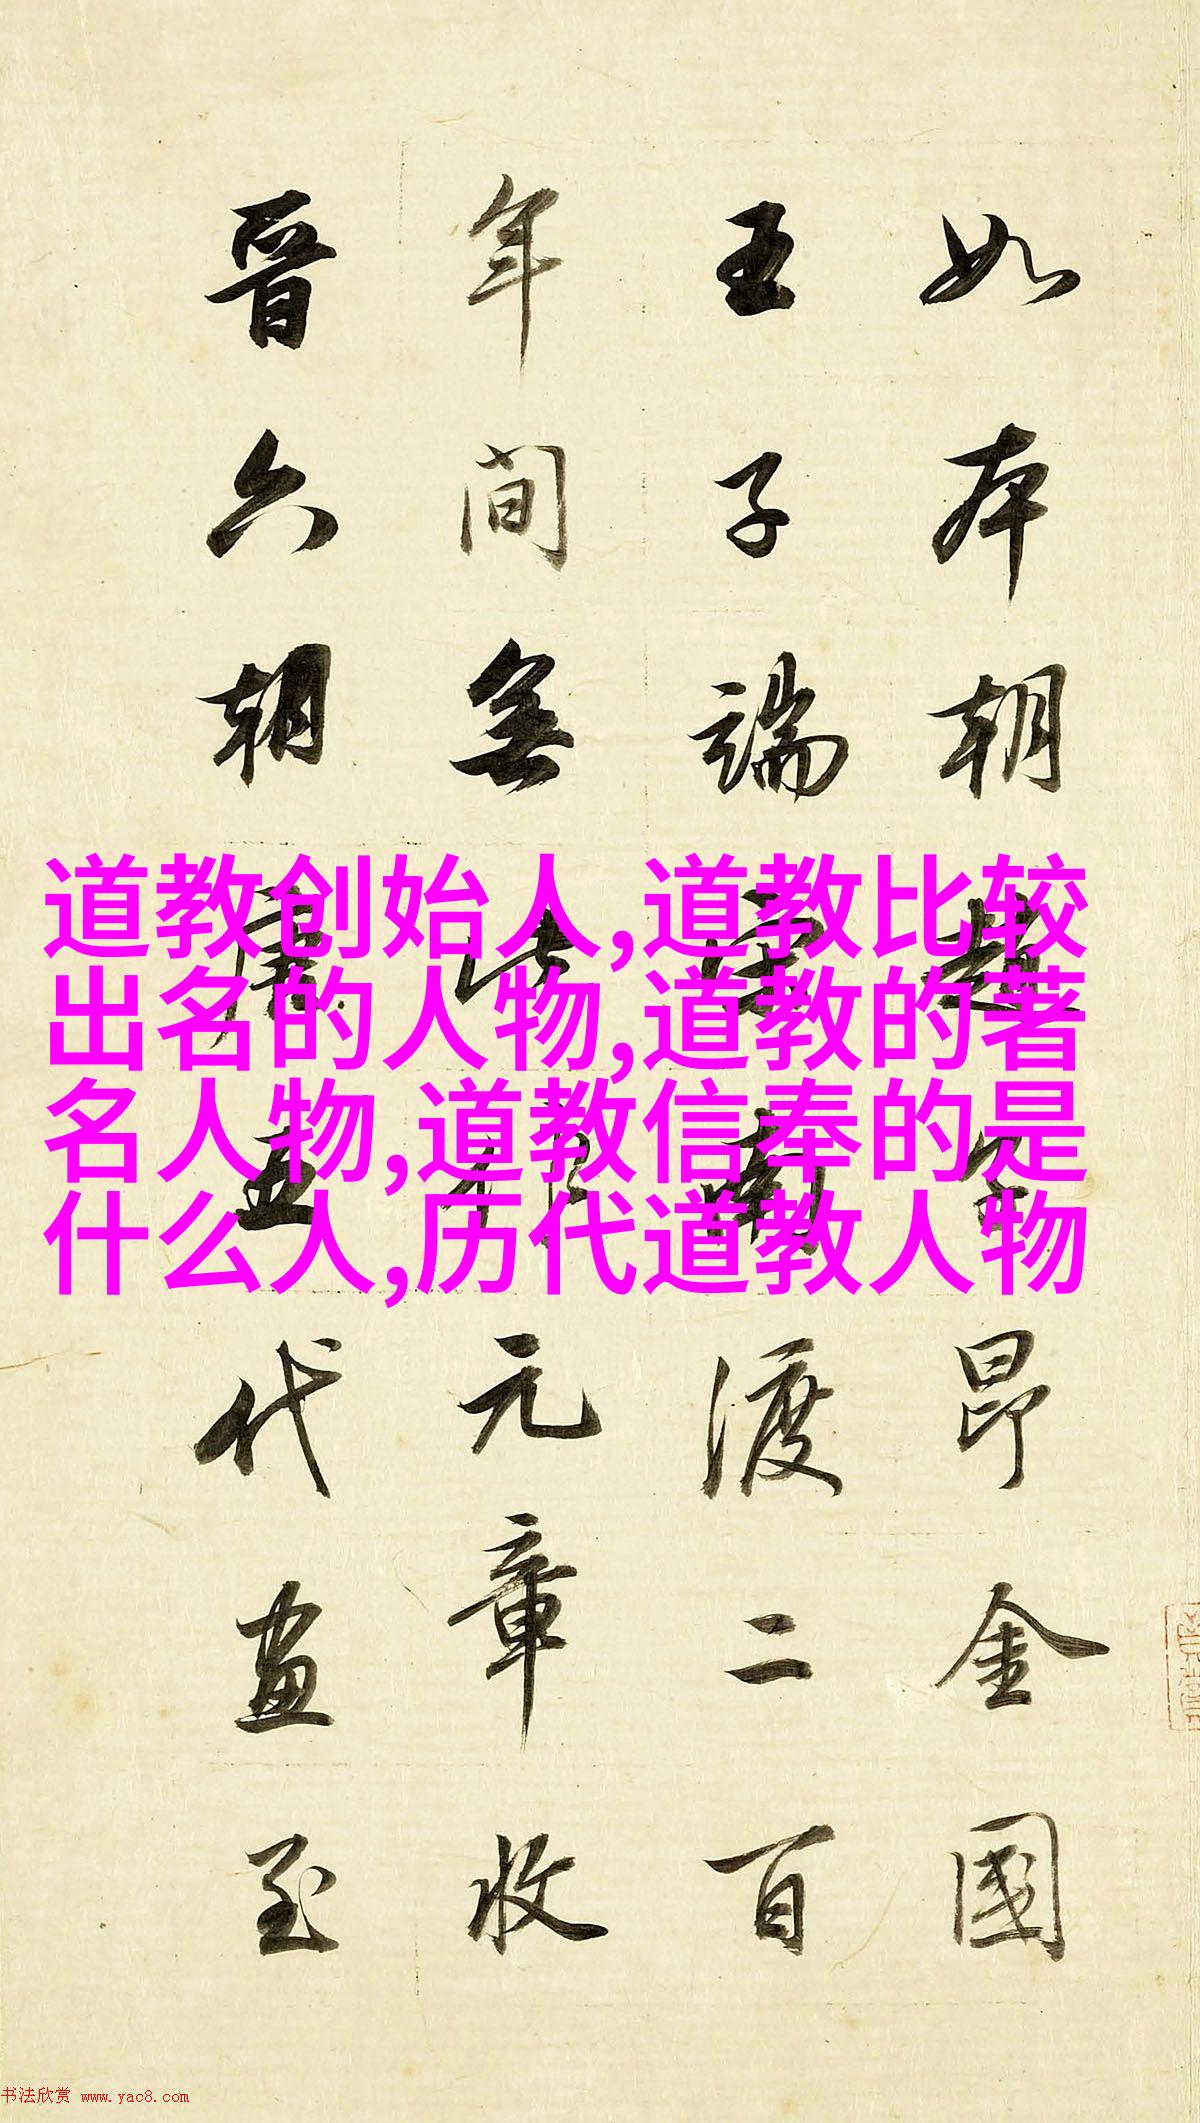 如本朝趙子昂金國
王子端宋南渡二百
年間無此元章收
晉六朝唐五代畫至
道教创始人,道教比较
出名的人物,道教的著
名人物,道教信奉的是
什么人,历代道教人物
书法欣赏 www.yac8.com